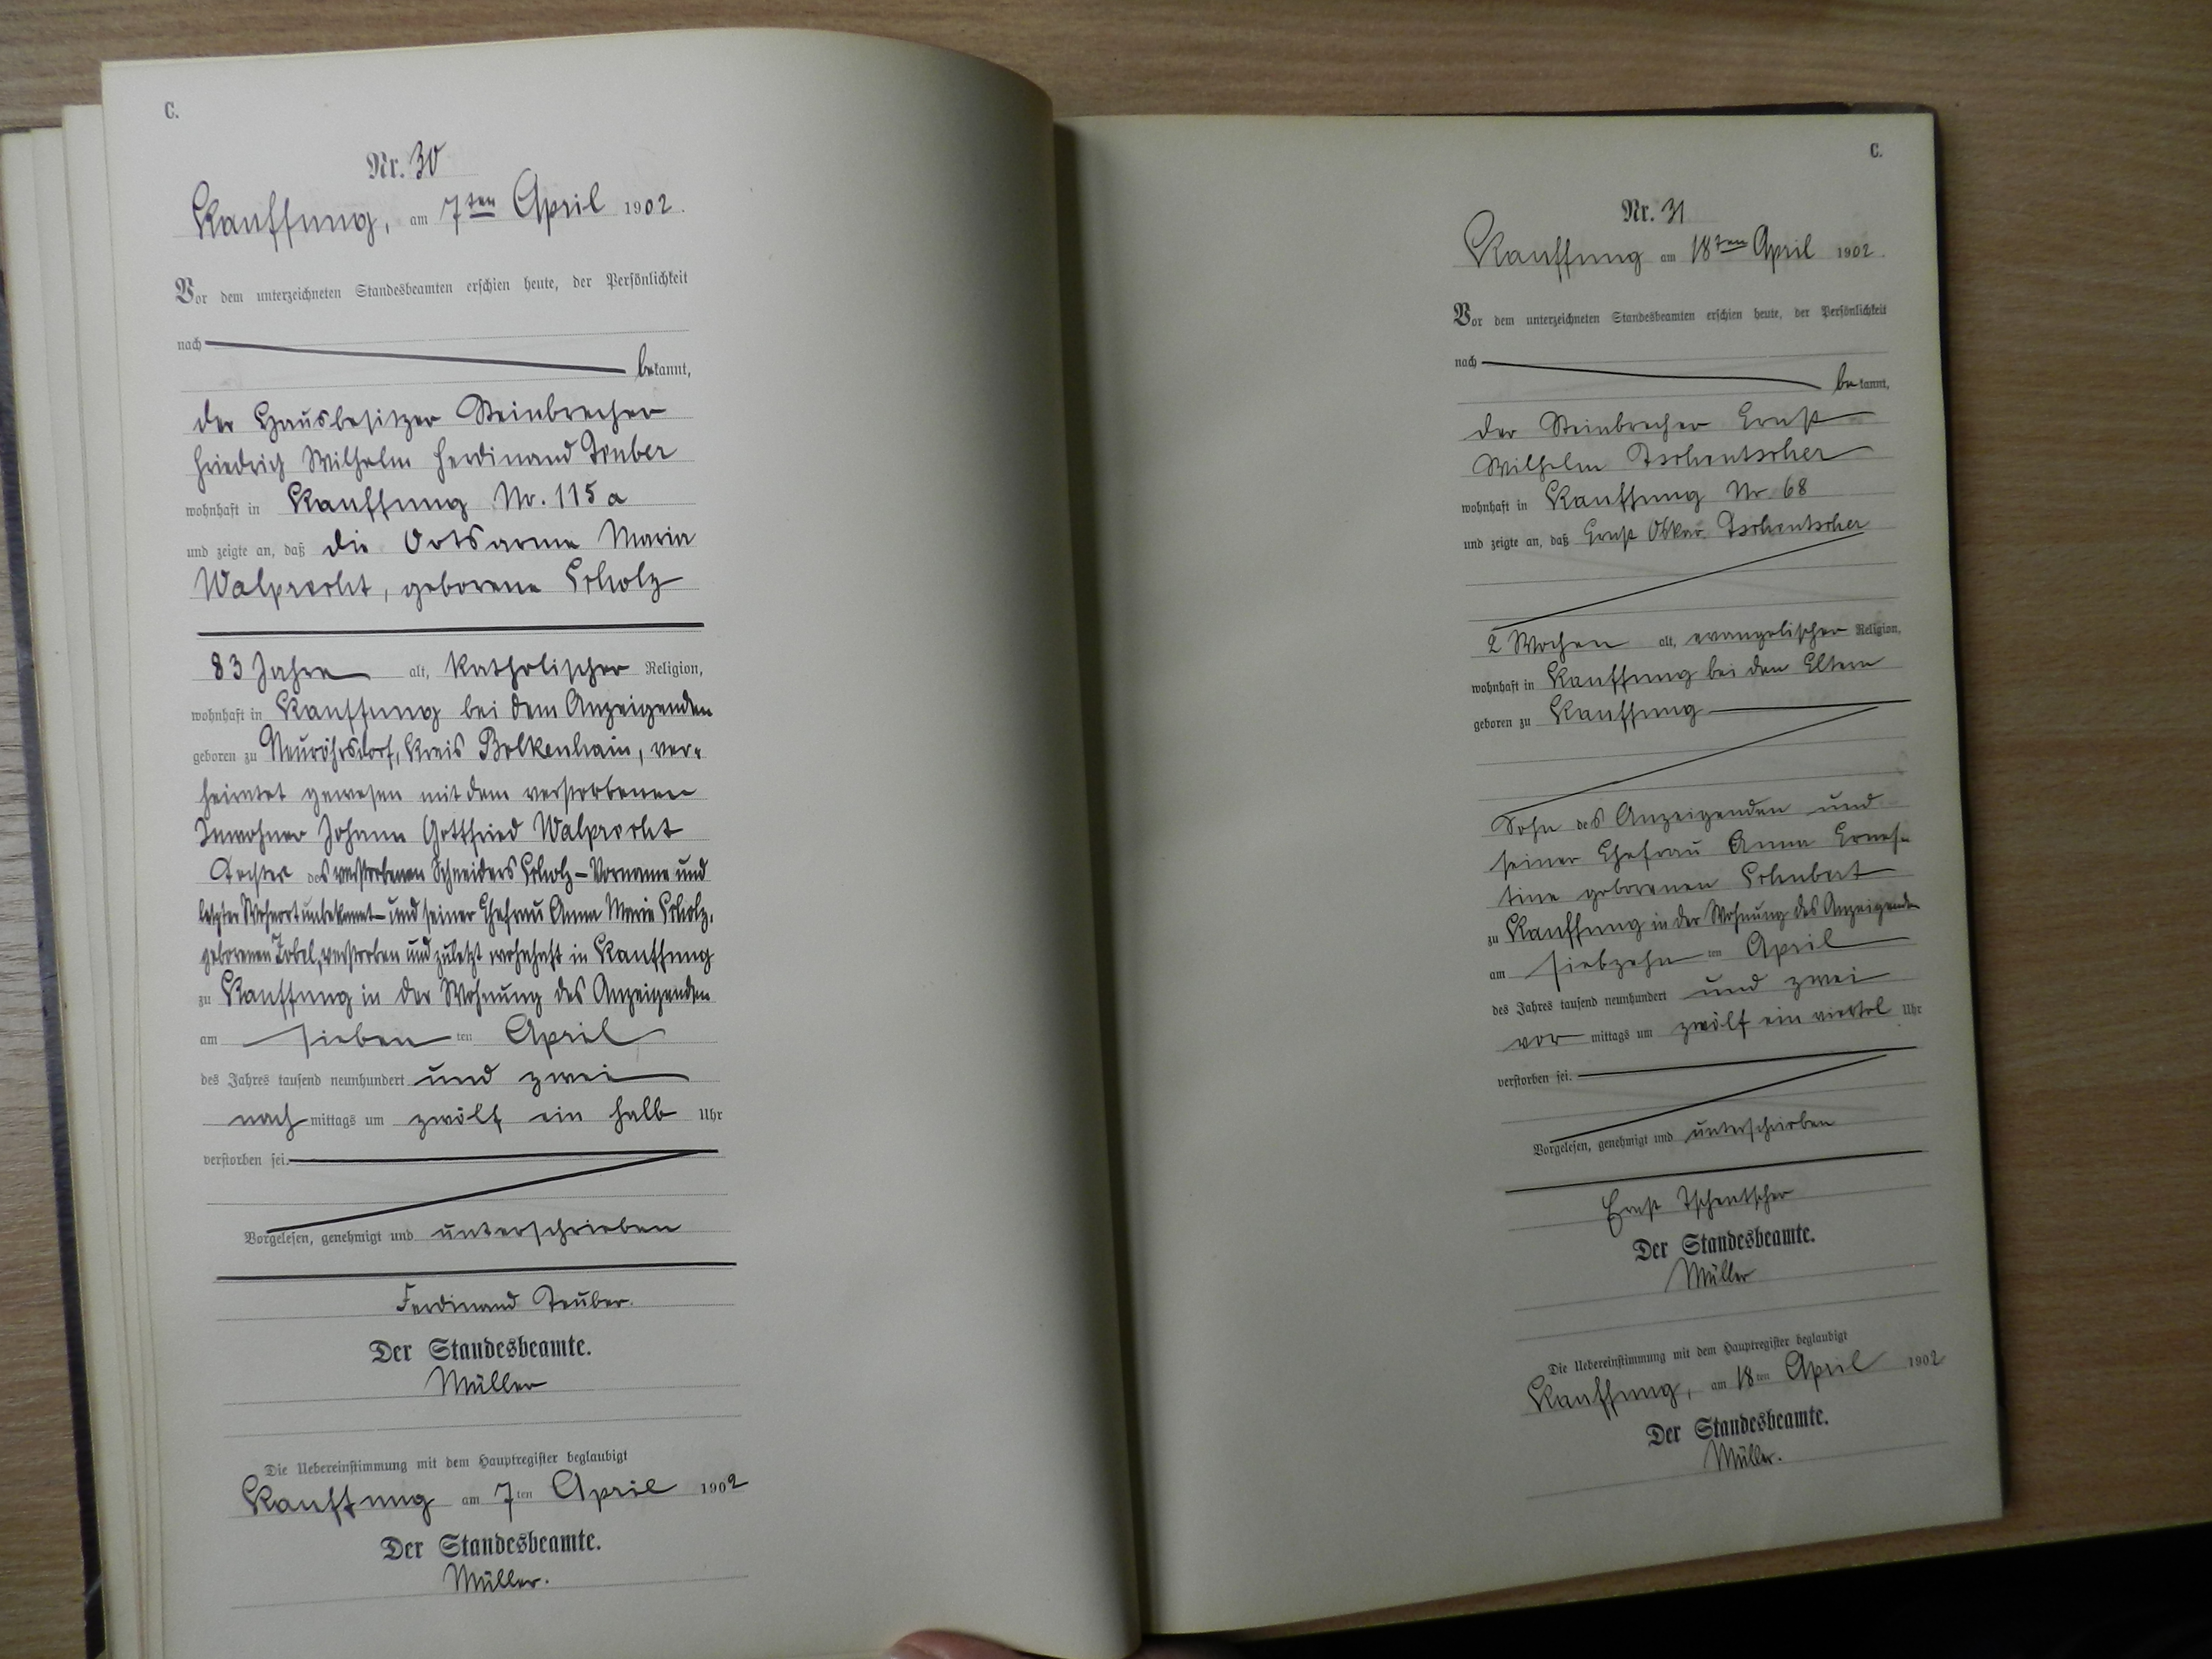 C.
Nr. 30
Kauffung, am 7ten April 1902.
Vor dem unterzeichneten Standesbeamten erschien heute, der Persönlichkeit
nach bekannt,
der Hausbesitzer Steinbrecher
Friedrich Wilhelm Ferdinand Teuber
wohnhaft in Kauffung Nr. 115a
und zeigte an, daß die Ortsarme Maria
Walprecht, geborene Scholz
83 Jahre alt, katholischer Religion,
wohnhaft in Kauffung bei dem Anzeigenden
geboren zu Neuröhrsdorf, Kreis Bolkenhain, ver-
heiratet gewesen mit dem verstorbenen
Inwohner Johann Gottfried Walprecht
Tochter des verstorbenen Schneiders Scholz – Vorname und
letzter Wohnort unbekannt – und seiner Ehefrau Anna Marie Scholz,
geborenen Zobel, verstorben und zuletzt wohnhaft in Kauffung
zu Kauffung in der Wohnung des Anzeigenden
am sieben ten April
des Jahres tausend neunhundert und zwei
nach mittags um zwölf ein halb Uhr
verstorben sei.
Vorgelesen, genehmigt und unterschrieben
Ferdinand Teuber.
Der Standesbeamte.
Müller
Die Uebereinstimmung mit dem Hauptregister beglaubigt
Kauffung am 7ten April 1902
Der Standesbeamte.
Müller.
C.
Nr. 31
Kauffung am 18ten April 1902.
Vor dem unterzeichneten Standesbeamten erschien heute, der Persönlichkeit
nach bekannt,
der Steinbrecher Ernst
Wilhelm Tschentscher
wohnhaft in Kauffung Nr. 68
und zeigte an, daß Ernst Oskar Tschentscher
2 Wochen alt, evangelischer Religion,
wohnhaft in Kauffung bei den Eltern
geboren zu Kauffung
Sohn des Anzeigenden und
seiner Ehefrau Anna Ernes-
tine geborenen Schubert
zu Kauffung in der Wohnung des Anzeigenden
am siebzehn ten April
des Jahres tausend neunhundert und zwei
vor mittags um zwölf ein viertel Uhr
verstorben sei.
Vorgelesen, genehmigt und unterschrieben
Ernst Tschentscher
Der Standesbeamte.
Müller
Die Uebereinstimmung mit dem Hauptregister beglaubigt
Kauffung, am 18ten April 1902
Der Standesbeamte.
Müller.